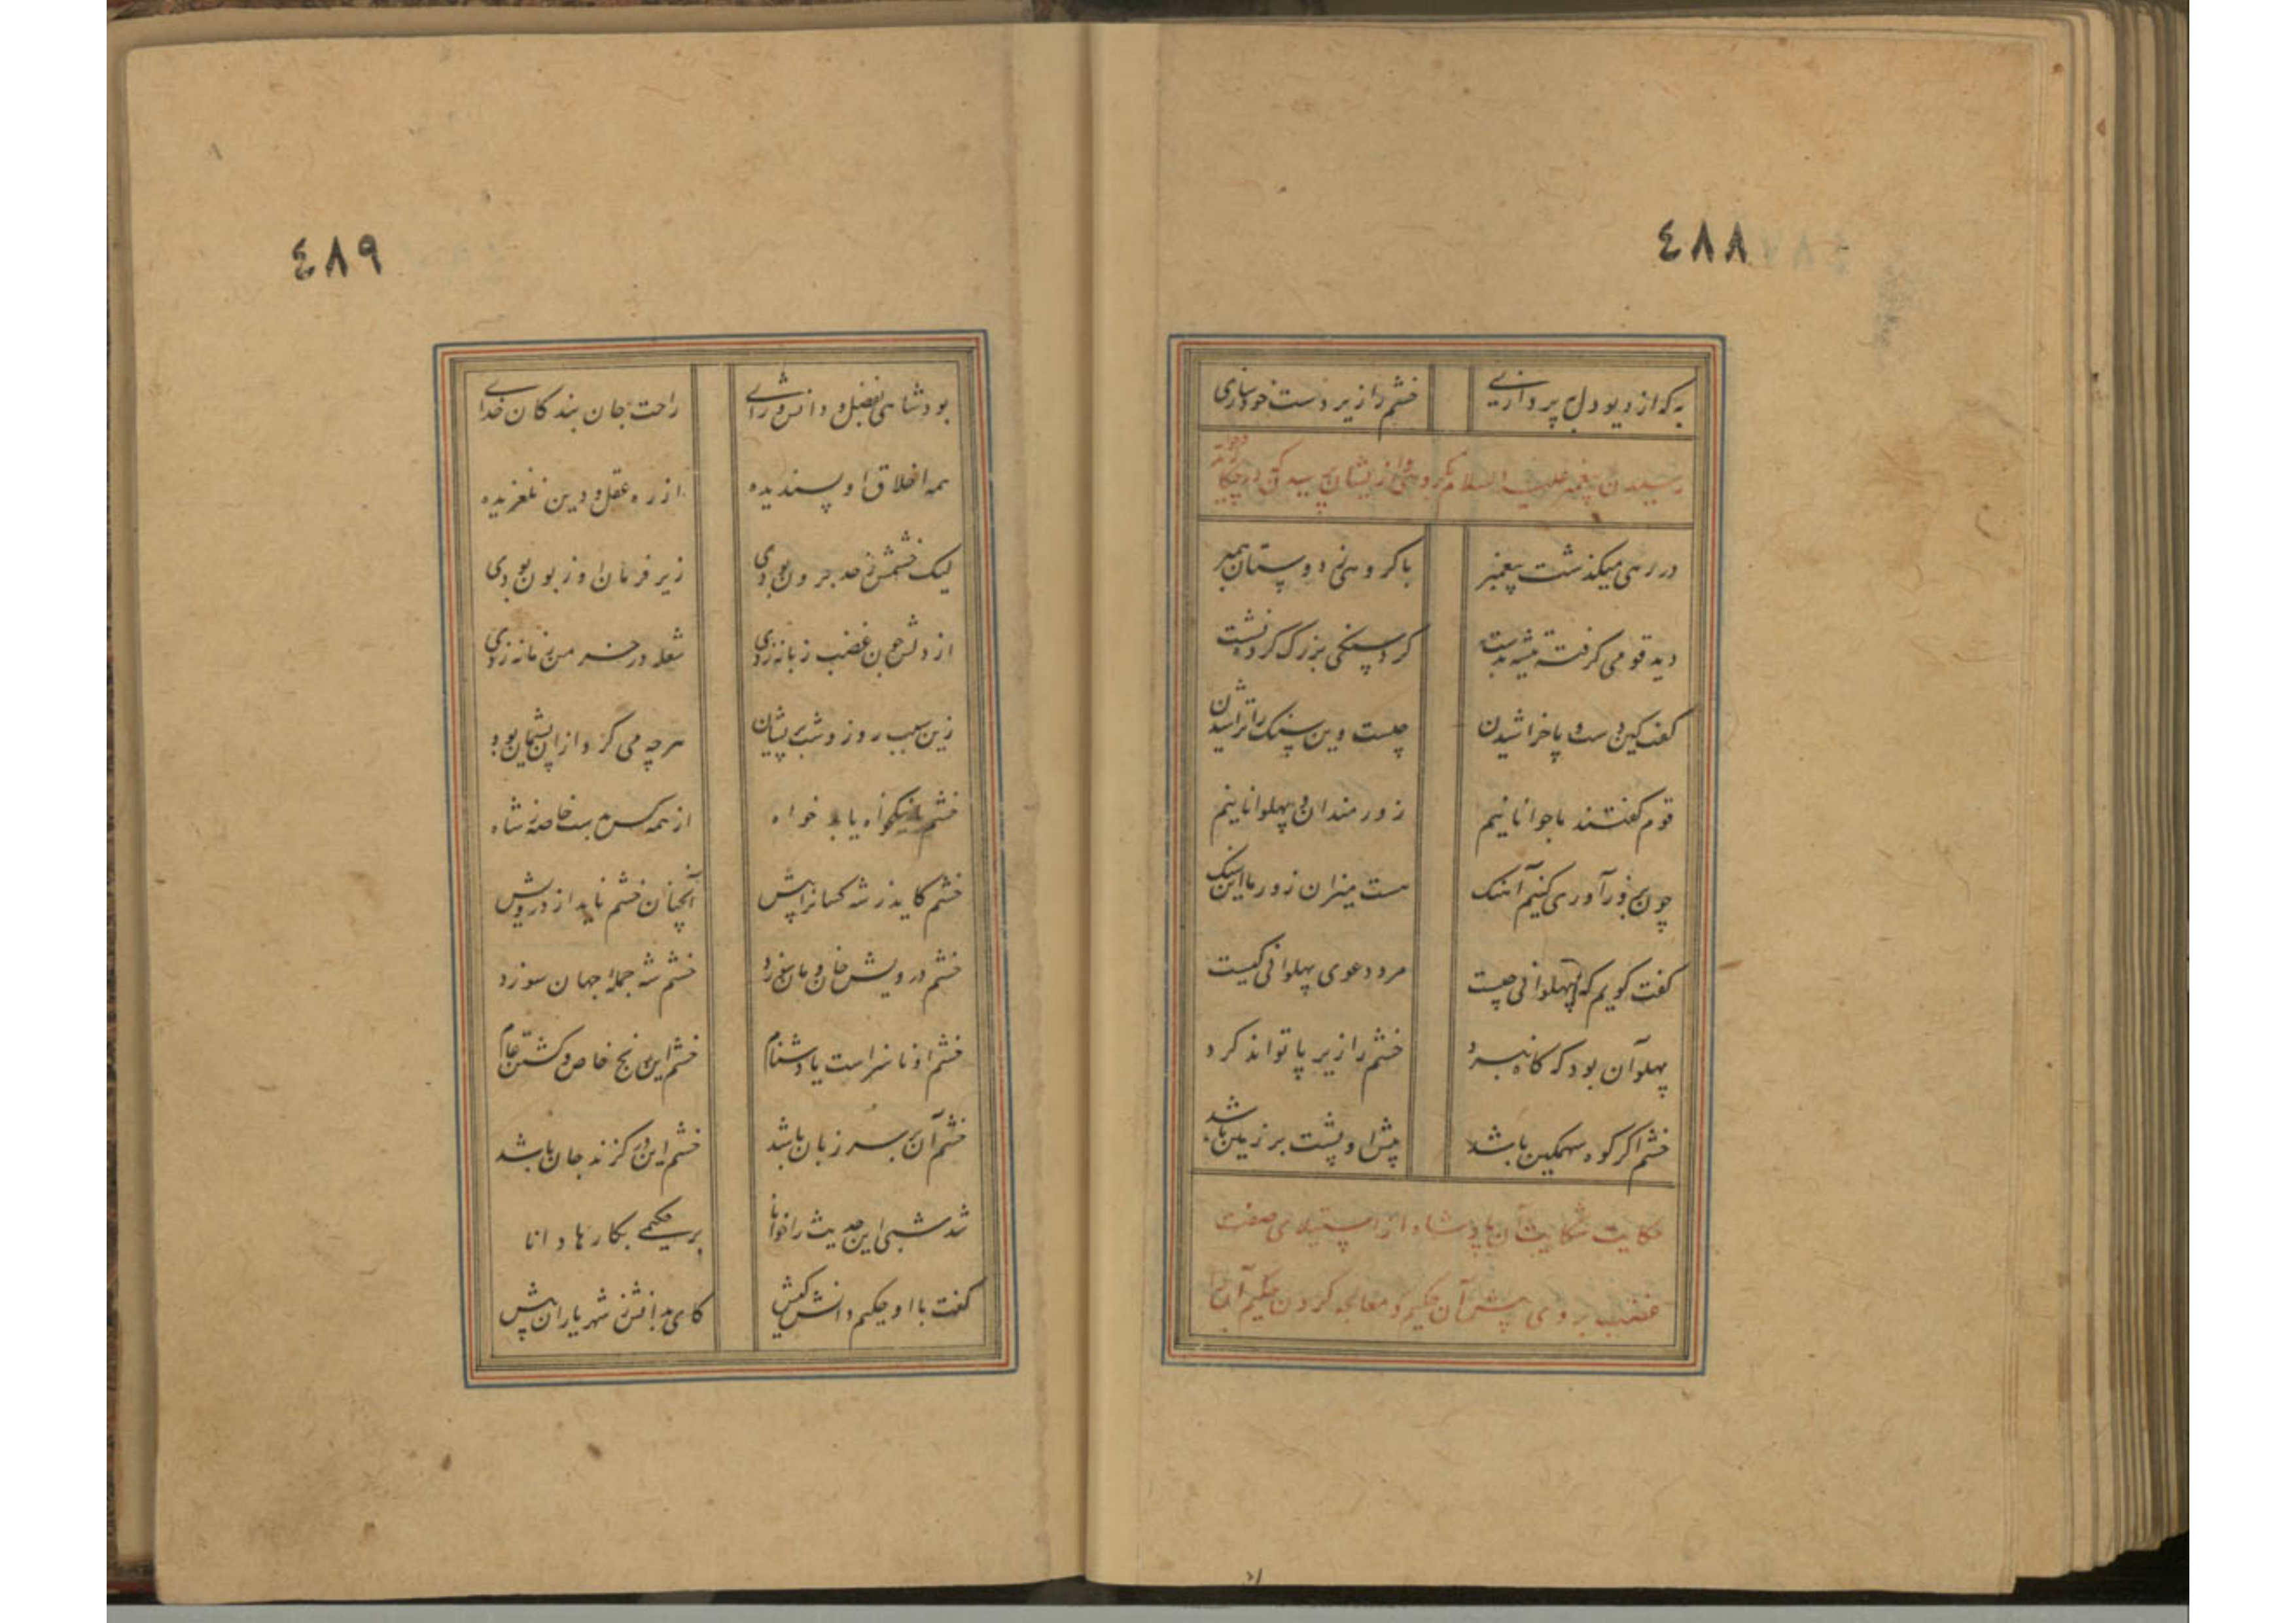 ٤٨٨
به که از دیو دل بپردازی خشم را زیردست خود سازی
رسیدن پیغمبر علیه السلام بگروهی و از ایشان پرسیدن که در چه کارید
در رهی میکذشت پیغمبر باکروهی ز دوستان همبر
دید قومی کرفته تیشه بدست کرد سنکی بزرک کرده نشست
کفت کین دست و پا خراشیدن چیست وین سنک را تراشیدن
قوم کفتند ما جوانانیم زورمندان و پهلوانانیم
چون بزورآوری کنیم آهنک هست میزان زور ما این سنک
کفت کویم که پهلوانی چیست مرد دعوی پهلوانی کیست
پهلوان آن بود که کاه نبرد خشم را زیر پا تواند کرد
خشم اکر کوه سهمکین باشد پیش او پشت بر زمین باشد
حکایت شکایت آن پادشاه از استیلای صفت
غضب بر وی پیش آن حکیم و معالجه کردن حکیم آن را
٤٨٩
بود شاهی بفضل و دانش و رای راحت جان بندکان خدای
همه اخلاق او پسندیده از ره عقل و دین نلغزیده
لیک خشمش ز حد برون بودی زیر فرمان او زبون بودی
از دلش چون غضب زبانه زدی شعله در خرمن زمانه زدی
زین سبب روز و شب پشیمان هرچه می کرد ازان پشیمان بود
خشم نیکو یا بد خواه از همه کس بدست خاصه ز شاه
خشم کاید ز شه کسانرا پیش آنچنان خشم ناید از درویش
خشم درویش خان و مان سوزد خشم شه جمله جهان سوزد
خشم او ناسزاست یا دشنام خشم این رنج خاص و کشتن عام
خشم آن بر سر زبان باشد خشم این در کزند جان باشد
شد شبی این حدیث را خوانا بر حکیمی بکارها دانا
کفت با او حکیم دانش کیش کای بدانش ز شهریاران پیش